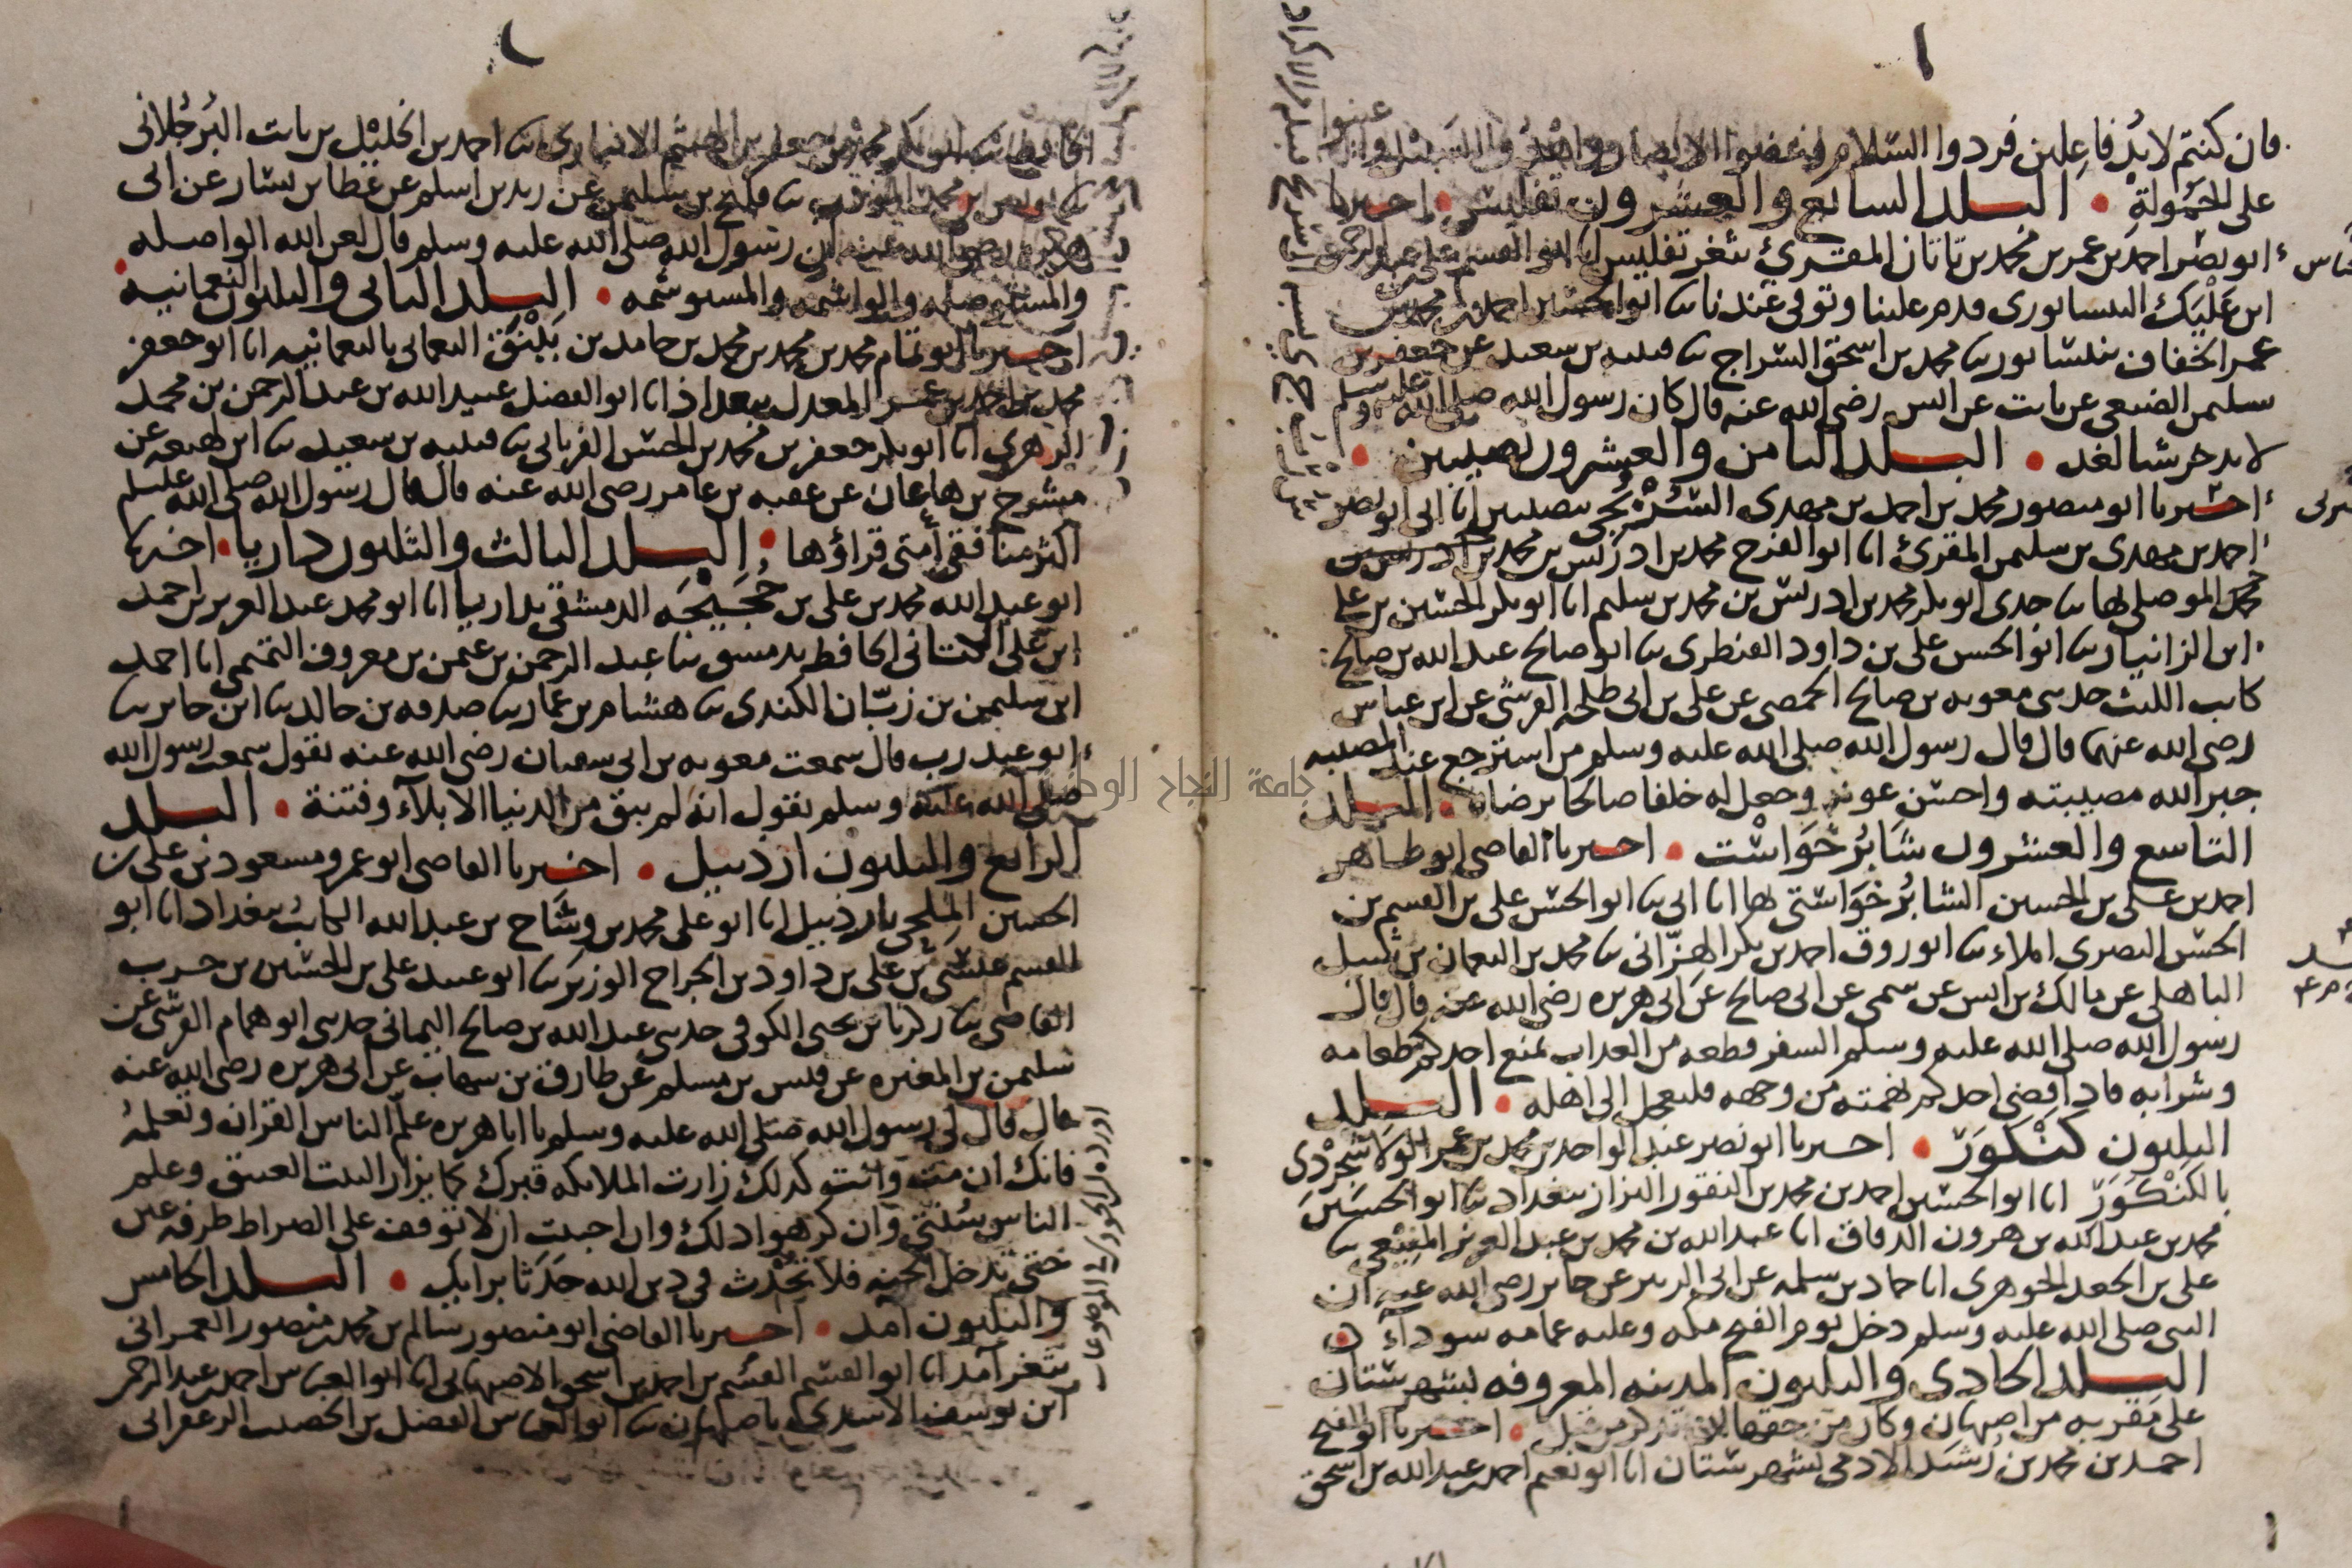 فان كنتم لابد فاعلين فردوا السلام وغضوا الابصار واهدوا السبيل واعينوا
على الحمولة . البلد السابع والعشرون تفليس . اخبرنا
ابو نصر احمد بن عمر بن محمد بن تاتان المقرئ بثغر تفليس انا ابو القسم علي بن عبد الرحمن
ابن عليك النيسابوري قدم علينا وتوفي عندنا ثنا ابو الحسين احمد بن محمد بن
عمر الخفاف بنيسابور ثنا محمد بن اسحق السراج ثنا قتيبه بن سعيد عن جعفر بن
سليمن الضبعي عن ثابت عن انس رضي الله عنه قال كان رسول الله صلى الله عليه وسلم
لا يدخر شيا لغد . البلد الثامن والعشرون نصيبين .
اخبرنا ابو منصور محمد بن احمد بن مهدي السريجي بنصيبين انا ابي ابو نصر
احمد بن مهدي بن سليمن المقرئ انا ابو الفرح محمد بن ادريس بن محمد بن ادريس بن
محمد الموصلي بها ثنا جدي ابو بكر محمد بن ادريس بن محمد بن سليم انا ابو بكر الحسين بن علي
ابن الزانيار ثنا ابو الحسن علي بن داود القنطري ثنا ابو صالح عبد الله بن صالح
كاتب الليث حدثني معويه بن صالح الحمصي عن علي بن ابي طلحه القرشي عن ابن عباس
رضي الله عنهما قال قال رسول الله صلى الله عليه وسلم من استرجع عند المصيبه
جبر الله مصيبته واحسن عونه وجعل له خلفا صالحا يرضاه . البلد
التاسع والعشرون شابرخواشت . اخبرنا القاضي ابو طاهر
احمد بن علي بن الحسين الشابرخواشتي بها انا ابي ثنا ابو الحسن علي بن القسم بن
الحسن البصري املاء ثنا ابو روق احمد بن بكر الهزاني ثنا محمد بن النعمان بن شبل
الباهلي عن مالك بن انس عن سمي عن ابي صالح عن ابي هريره رضي الله عنه قال قال
رسول الله صلى الله عليه وسلم السفر قطعه من العذاب يمنع احدكم طعامه
وشرابه فاذا قضى احدكم نهمته من وجهه فليعجل الى اهله . البلد
الثلثون كنكور . اخبرنا ابو نصر عبد الواحد بن محمد بن عمر الولاشجردي
بالكنكور انا ابو الحسين احمد بن محمد بن النقور البزاز ببغداد ثنا ابو الحسين
محمد بن عبد الله بن هرون الدقاق انا عبد الله بن محمد بن عبد العزيز المنيعي ثنا
علي بن الجعد الجوهري انا حماد بن سلمه عن ابي الزبير عن جابر رضي الله عنه ان
النبي صلى الله عليه وسلم دخل يوم الفتح مكه وعليه عمامه سوداء .
البلد الحادي والثلثون المدينه المعروفه بشهرستان
على مقربه من اصبهان وكان من حقها ان تذكر من قبل . اخبرنا ابو الفتح
احمد بن محمد بن رشيد الادمي بشهرستان انا ابو نعيم احمد بن عبد الله بن اسحق
الحافظ ثنا ابو بكر محمد بن جعفر بن الهيثم الانباري ثنا احمد بن الخليل بن ثابت البرجلاني
عن زيد بن اسلم عن عطا بن يسار عن ابي
هريره رضي الله عنه ان رسول الله صلى الله عليه وسلم قال لعن الله الواصله
والمستوصله والواشمه والمستوشمه . البلد الثاني والثلثون النعمانيه .
اخبرنا ابو تمام محمد بن محمد بن محمد بن حامد بن بنبق النعماني بالنعمانيه انا ابو جعفر
محمد بن احمد بن عمر المعدل ببغداد انا ابو الفضل عبيد الله بن عبد الرحمن بن محمد
الزهري انا ابو بكر جعفر بن محمد بن الحسن الفريابي ثنا قتيبه بن سعيد ثنا ابن لهيعه عن
مشرح بن هاعان عن عقبه بن عامر رضي الله عنه قال قال رسول الله صلى الله عليه وسلم
اكثر منافقي أمتي قراؤها . البلد الثالث والثلثون داريا . اخبرنا
ابو عبد الله محمد بن علي بن حجيجه الدمشقي بداريا انا ابو محمد عبد العزيز بن احمد
ابن علي الكتاني الحافظ بدمشق ثنا عبد الرحمن بن عثمن بن معروف التميمي انا احمد
ابن سليمن بن زبان الكندي ثنا هشام بن عمار ثنا صدقه بن خالد ثنا ابن جابر ثنا
ابو عبد رب قال سمعت معويه بن ابي سفيان رضي الله عنه يقول سمعت رسول الله
صلى الله عليه وسلم يقول انه لم يبق من الدنيا الا بلاء وفتنة . البلد
الرابع والثلثون اردبيل . اخبرنا القاضي ابو عمرو مسعود بن علي بن
الحسين الملحي باردبيل انا ابو علي محمد بن وشاح بن عبد الله الكاتب ببغداد انا ابو
القسم عيسى بن علي بن داود بن الجراح الوزير ثنا ابو عبيد علي بن الحسين بن حرب
القاضي ثنا زكريا بن يحيى الكوفي حدثني عبد الله بن صالح اليماني حدثني ابو همام القرشي عن
سليمن بن المغيره عن قيس بن مسلم عن طارق بن شهاب عن ابي هريره رضي الله عنه
قال قال لي رسول الله صلى الله عليه وسلم يا ابا هريره علم الناس القران وتعلمه
فانك ان مت وانت كذلك زارت الملائكه قبرك كما يزار البيت العتيق وعلم
الناس سنتي وان كرهوا ذلك وان احببت ان لا توقف على الصراط طرفه عين
حتى تدخل الجنه فلا تحدث في دين الله حدثا برايك . البلد الخامس
والثلثون آمد . اخبرنا القاضي ابو منصور سالم بن محمد بن منصور العمراني
بثغر آمد انا ابو القسم القسم بن احمد بن اسحق الاصبهاني انا ابو العباس احمد بن عبد الرحمن
ابن يوسف الاسدي باصبهان ثنا ابو العباس الفضل بن الخصيب الزعفراني
اورده ابن الجوزي في الموضوعات
جامعة النجاح الوطنية